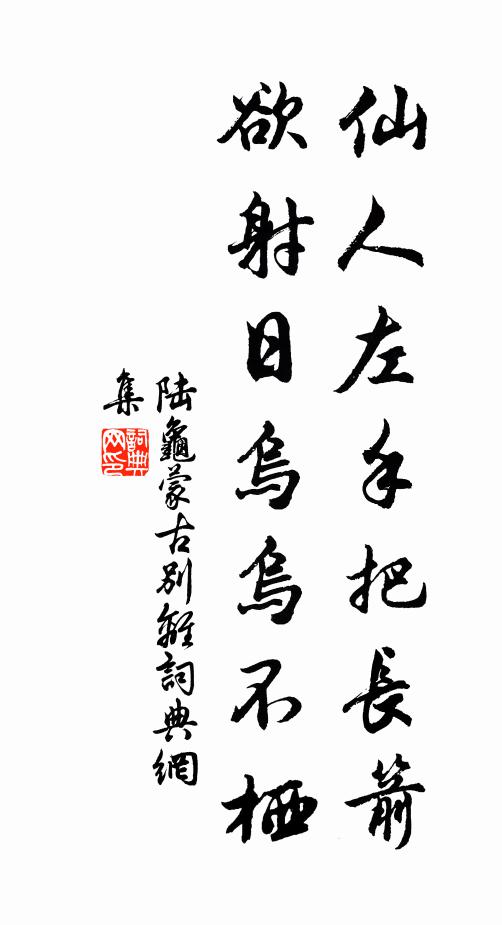 仙人左手把長箭
欲射日烏烏不栖
陆龜蒙古別離詞典網
集
詞典网印